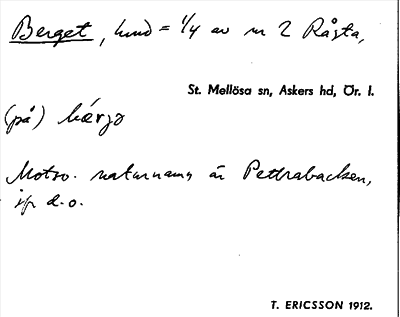 Berget, hmd = 1/4 av nr 2 Rågsta,
St. Mellösa sn, Askers hd, Ör. l.
(på) bárjə
Motsv. naturnamn är Pettrabacken,
jfr d.o.
T. ERICSSON 1912.